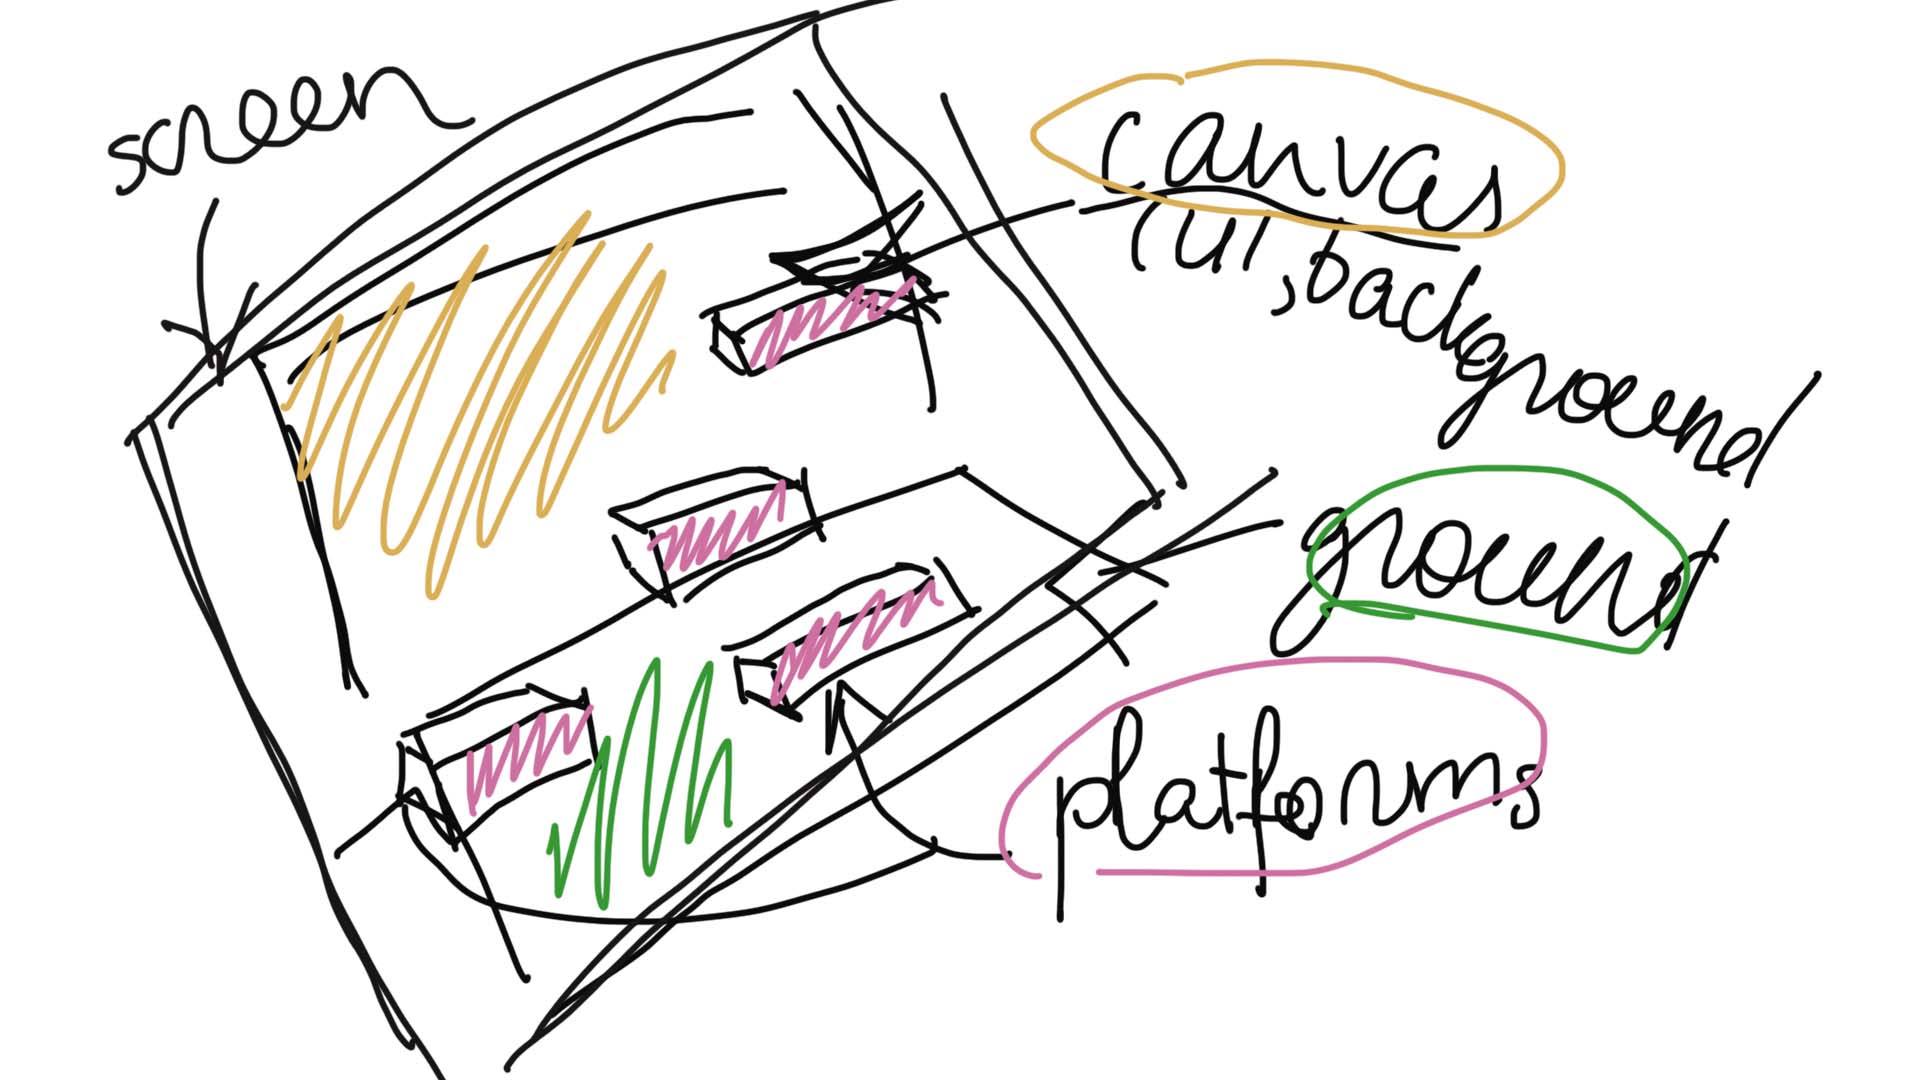 screen
canvas
(UI, background)
ground
platforms